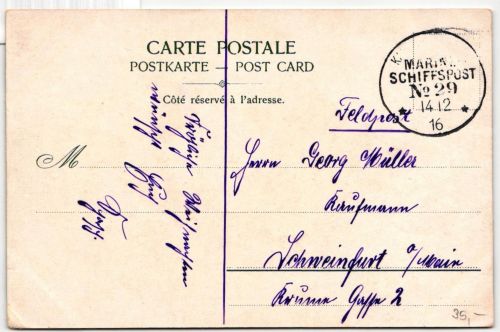 CARTE POSTALE
POSTKARTE – POST CARD
Côté réservé à l'adresse.
K.
MARINE
SCHIFFSPOST
No 29
* 14.12 *
16
Fröhliche Weihnachten
wünscht Euch
M
Feldpost
Herrn Georg Müller
Kaufmann
Schweinfurt a/Main
Krume Gasse 2
35,-